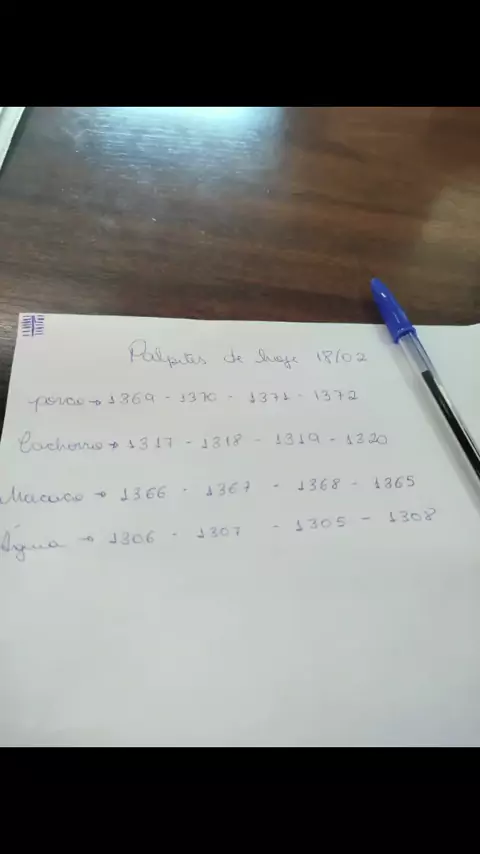 Palpites de hoje 18/02
porco → 1369 - 1370 - 1371 - 1372
Cachorro → 1317 - 1318 - 1319 - 1320
Macaco → 1366 - 1367 - 1368 - 1365
Águia → 1306 - 1307 - 1305 - 1308